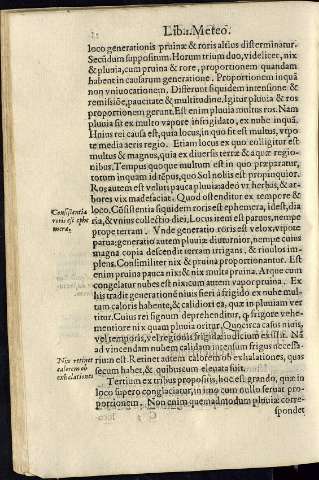 Lib.1.Meteo.
loco generationis pruinæ & roris altius disterminatur.
Secũdum suppositum. Horum trium duo, videlicet, nix
& pluvia, cum pruina & rore, proportionem quandam
habent in causarum generatione. Proportionem inquã
non vniuocationem. Differunt siquidem intensione &
remissiõe, paucitate & multitudine. Igitur pluuia & ros
proportionem gerunt. Est enim pluuia multus ros. Nam
pluuia fit ex multo vapore infrigidato, ex nube inquã.
Huius rei causa est, quia locus, in quo fit est multus, vtpo
te media aeris regio. Etiam locus ex quo colligitur est
multus & magnus, quia ex diuersis terræ & aquæ regio-
nibus. Tempus quoque multum est in quo præparatur,
totum inquam id tẽpus, quo Sol nobis est propinquior.
Ros autem est veluti pauca pluuia: adeò vt herbas, & ar-
bores vix madefaciat. Quod ostenditur ex tempore &
loco. Cõsistentia siquidem roris est ephemera, idest, dia
ria, & vnius collectio diei, Locus item est paruus, nempe
prope terram. Vnde generatio roris est velox, vtpote
parua: generatio autem pluuiæ diuturnior, nempe cuius
magna copia descendit terram irrigans, & riuulos im-
plens. Consimiliter nix & pruina proportionantur. Est
enim pruina pauca nix: & nix multa pruina. Atque cum
congelatur nubes est nix: cum autem vapor pruina. Ex
his tradit generatiõe niuis fieri à frigido ex nube mul-
tam caloris habente, & calidiori ea, quæ in pluuiam ver
titur. Cuius rei signum deprehenditur, q frigore vehe-
mentiore nix quam pluuia oritur. Quocirca casus niuis,
vel temporis, vel regionis frigidæ iudicium existit. Nã
ad vincendam nubem calidam intensum frigus necessa-
rium est. Retinet autem calorem ob exhalationes, quas
secum habet, & quibuscum eleuata fuit.
Tertium ex tribus propositis, hoc est grando, quæ in
loco supero conglaciatur, in imo cum nullo seruat pro-
portionem. Non enim quemadmodum pluuiæ corre-
spondet
Consistentia
roris est ephe
mera.
Nix retinet
calorem ob
exhalationes